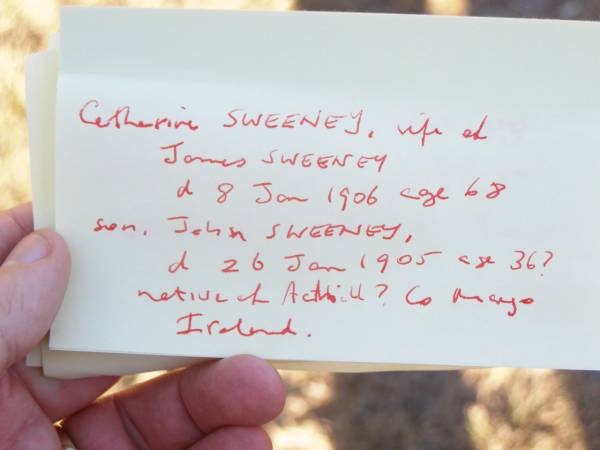 Catherine SWEENEY, wife of
James SWEENEY
d 8 Jan 1906 age 68
son, John SWEENEY,
d 26 Jan 1905 age 36?
native of Acthill? Co Mayo
Ireland.